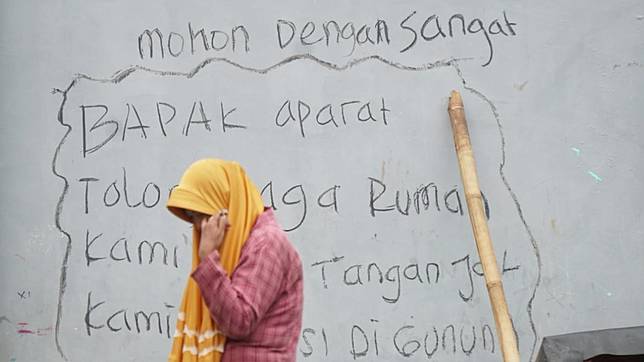 mohon Dengan Sangat
BAPAK aparat
Tolo aga Rumah
Kami Tangan
Kami si Di Gunun